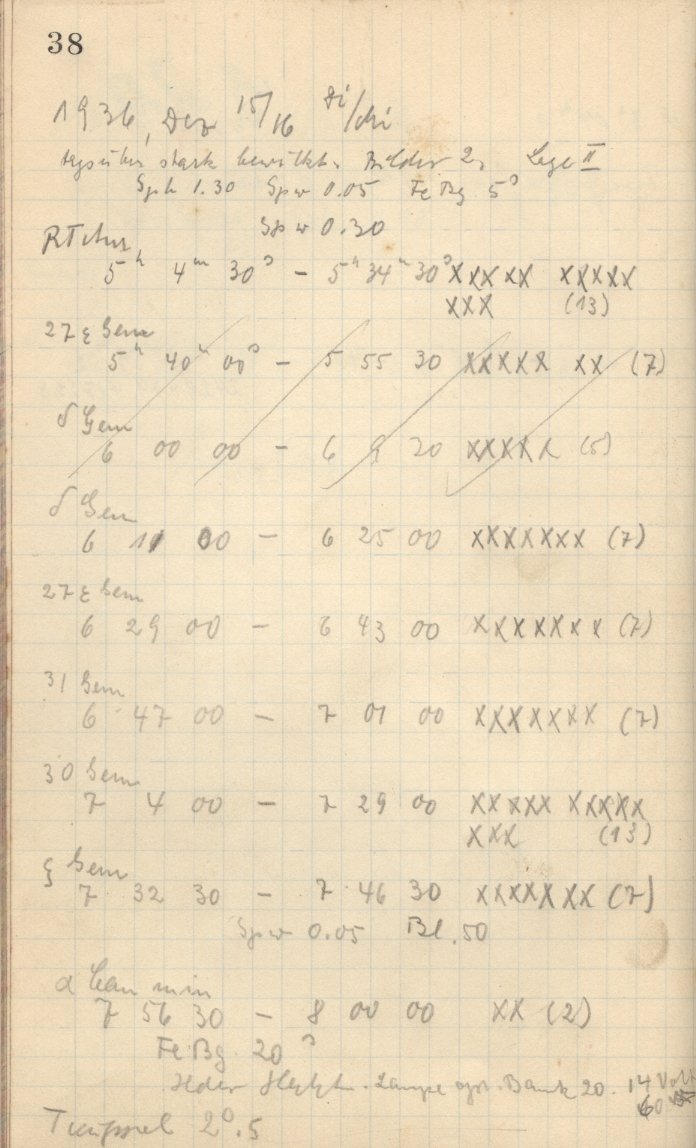 38
1936, Dez 15/16 Di/Mi
tagsüber stark bewölkt. Bilder 2, Lage II
Sph 1.30 Spw 0.05 Fe Bg 5ˢ
Spw 0.30
RT Aur
5ʰ 4ᵐ 30ˢ – 5ʰ 34ᵐ 30ˢ XXXXX XXXXX
XXX (13)
27 ε Gem
5ʰ 40ᵐ 00ˢ – 5 55 30 XXXXX XX (7)
δ Gem
6 00 00 – 6 9 20 XXXXX (5)
δ Gem
6 11 00 – 6 25 00 XXXXXXX (7)
27 ε Gem
6 29 00 – 6 43 00 XXXXXXX (7)
31 Gem
6 47 00 – 7 01 00 XXXXXXX (7)
30 Gem
7 4 00 – 7 29 00 XXXXX XXXXX
XXX (13)
ξ Gem
7 32 30 – 7 46 30 XXXXXXX (7)
Spw 0.05 Bl. 50
α Can min
7 56 30 – 8 00 00 XX (2)
Fe Bg 20ˢ
Lampe opt. Bank 20. 14 Volt
60
2°.5